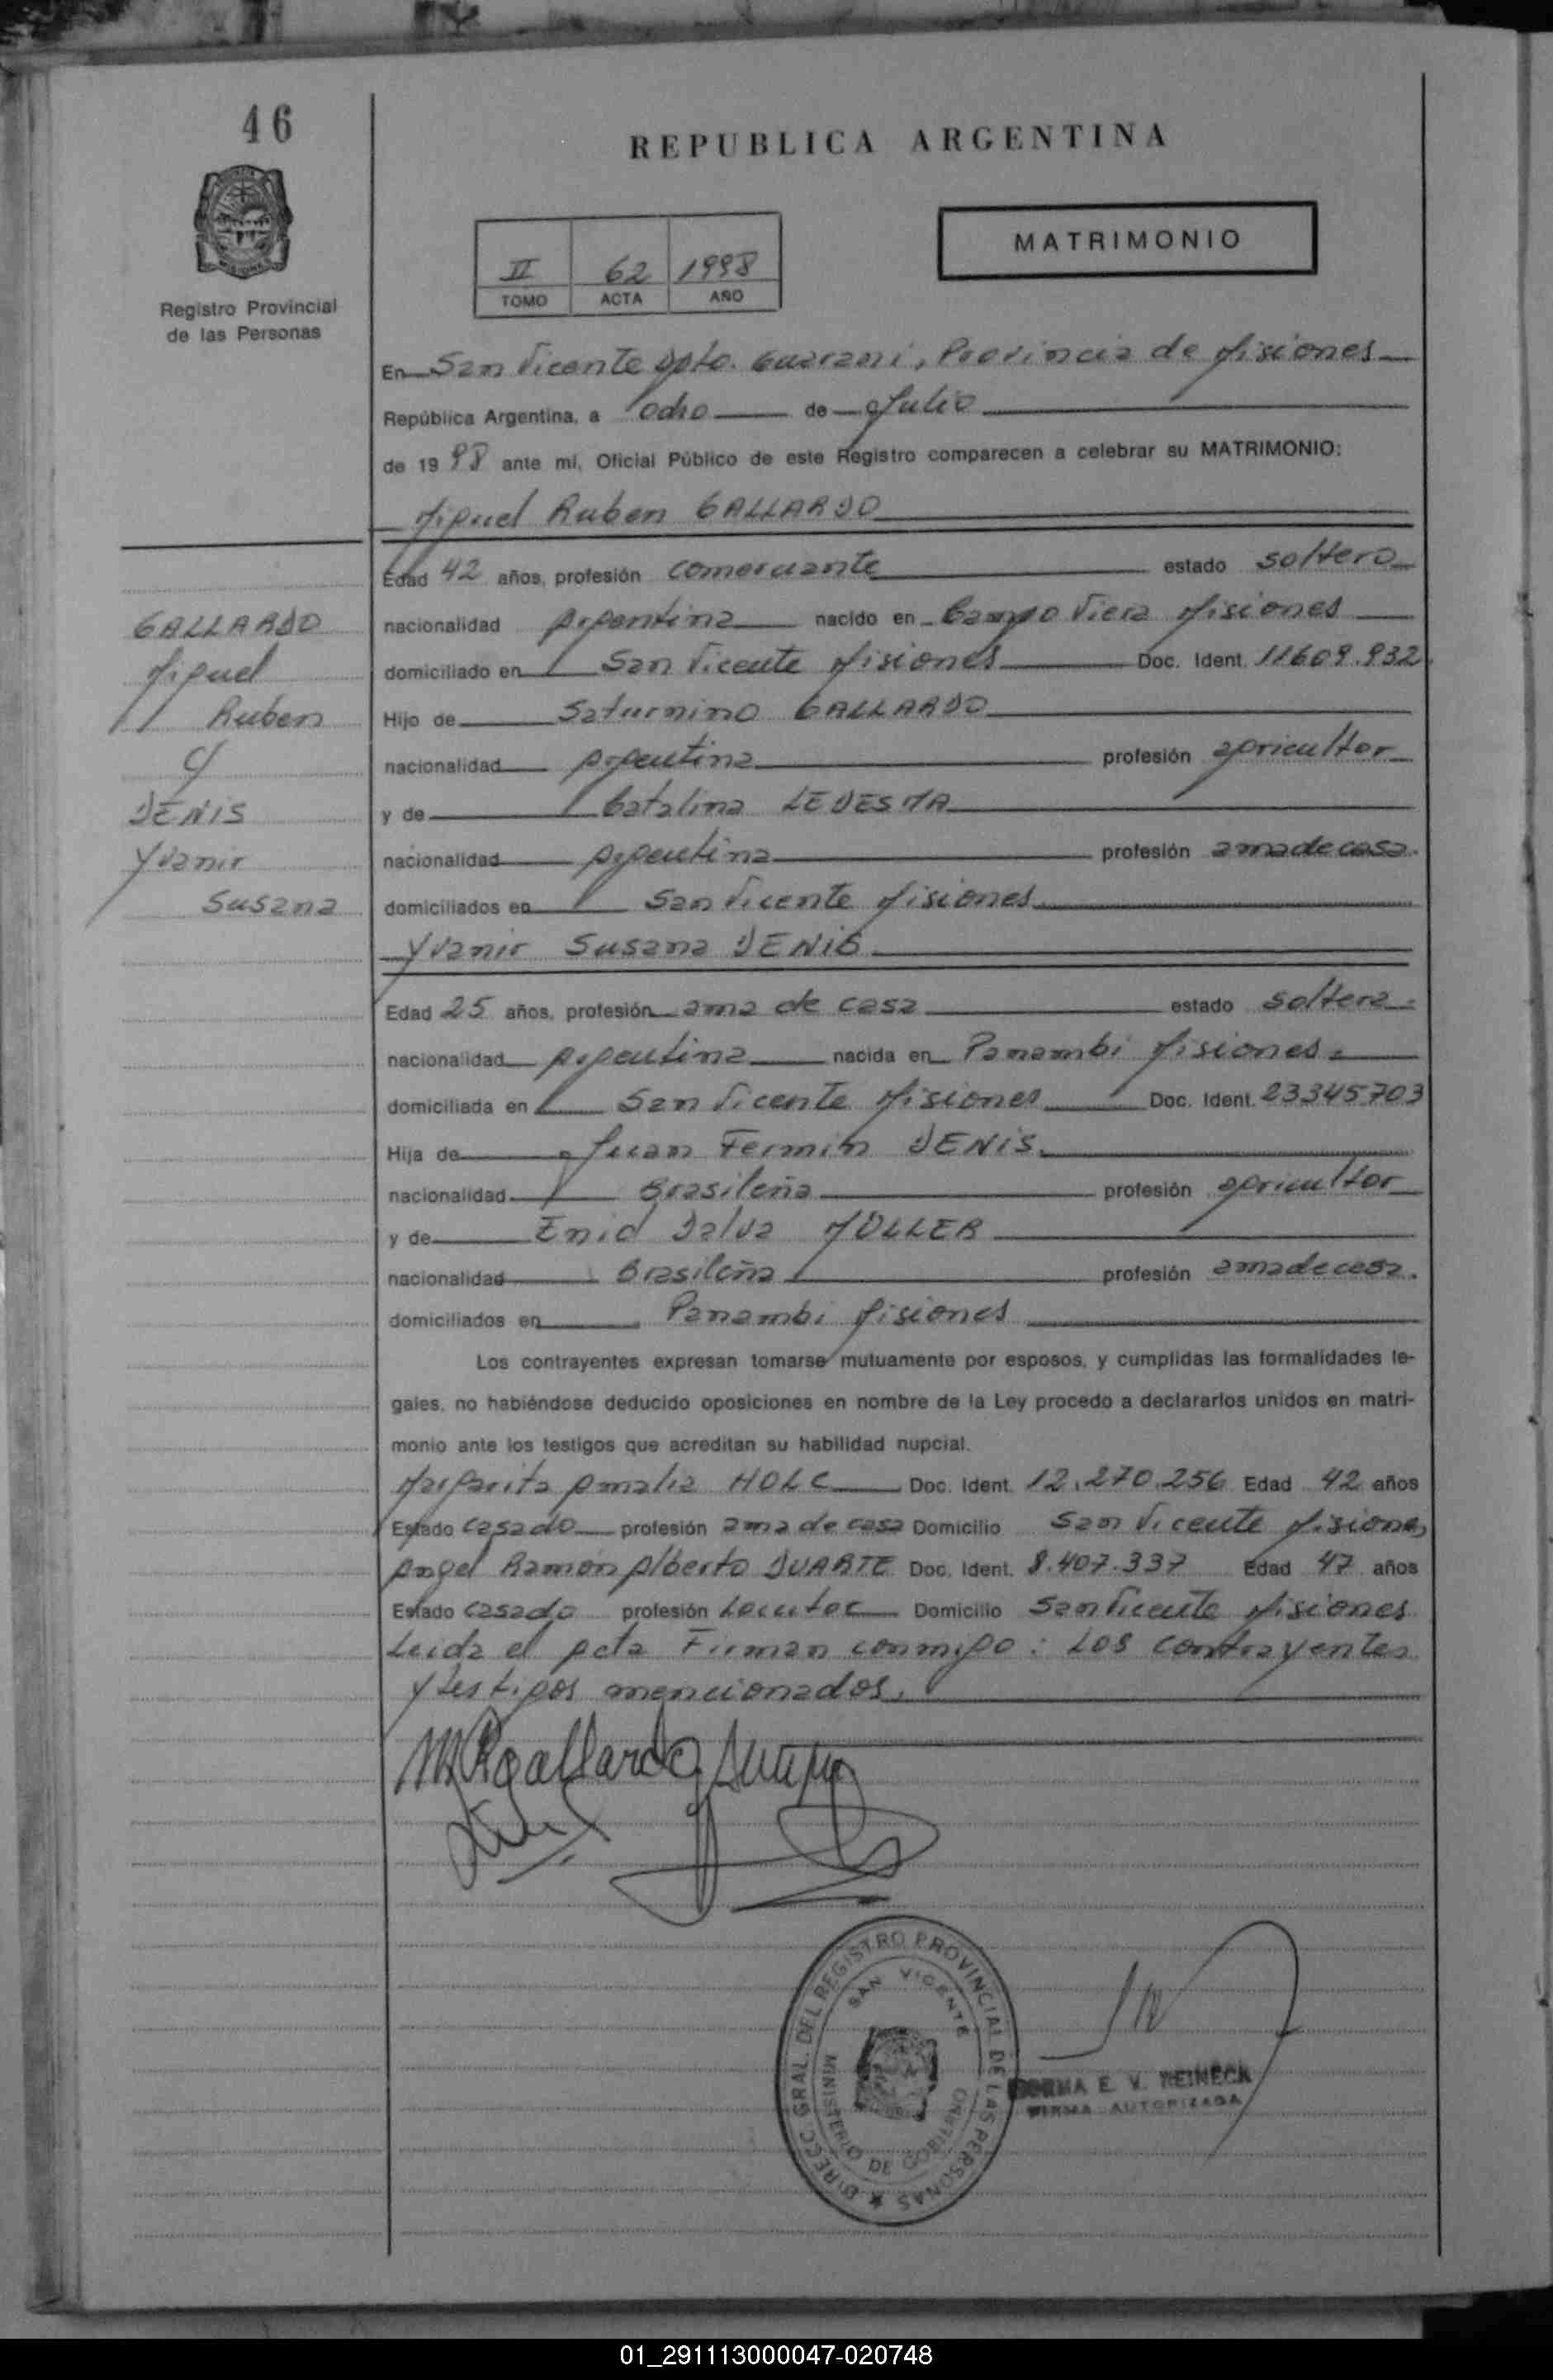 46
REPUBLICA ARGENTINA
MATRIMONIO
II 62 1998
TOMO ACTA AÑO
Registro Provincial
de las Personas
En San Vicente Dpto. Guarani, Provincia de Misiones
República Argentina, a ocho de Julio
de 1998 ante mí, Oficial Público de este Registro comparecen a celebrar su MATRIMONIO:
Miguel Ruben GALLARDO
Edad 42 años, profesión comerciante estado soltero
nacionalidad Argentina nacido en Campo Viera Misiones
domiciliado en San Vicente Misiones Doc. Ident. 11609.932
Hijo de Saturnino GALLARDO
nacionalidad Argentina profesión agricultor
y de Catalina LEDESMA
nacionalidad Argentina profesión ama de casa.
domiciliados en San Vicente Misiones
GALLARDO
Miguel
Ruben
c/
DENIS
Yvanir
Susana
Yvanir Susana DENIS
Edad 25 años, profesión ama de casa estado soltera
nacionalidad Argentina nacida en Panambi Misiones
domiciliada en San Vicente Misiones Doc. Ident. 23345703
Hija de Juan Fermin DENIS.
nacionalidad Brasileña profesión agricultor
y de Enid Dalva MÜLLER
nacionalidad Brasileña profesión ama de casa.
domiciliados en Panambi Misiones
Los contrayentes expresan tomarse mutuamente por esposos, y cumplidas las formalidades le-
gales, no habiéndose deducido oposiciones en nombre de la Ley procedo a declararlos unidos en matri-
monio ante los testigos que acreditan su habilidad nupcial.
Margarita Amalia HOLC Doc. Ident. 12.270.256 Edad 42 años
Estado casado profesión ama de casa Domicilio San Vicente Misiones
Angel Ramón Alberto DUARTE Doc. Ident. 8.407.337 Edad 47 años
Estado casado profesión Locutor Domicilio San Vicente Misiones
Leida el Acta Firman conmigo: LOS contrayentes
y testigos mencionados.
MRGallardo
DIRECC. GRAL. DEL REGISTRO PROVINCIAL DE LAS PERSONAS
SAN VICENTE
MINISTERIO DE GOBIERNO
NORMA E. V. REINECK
FIRMA AUTORIZADA
01_291113000047-020748